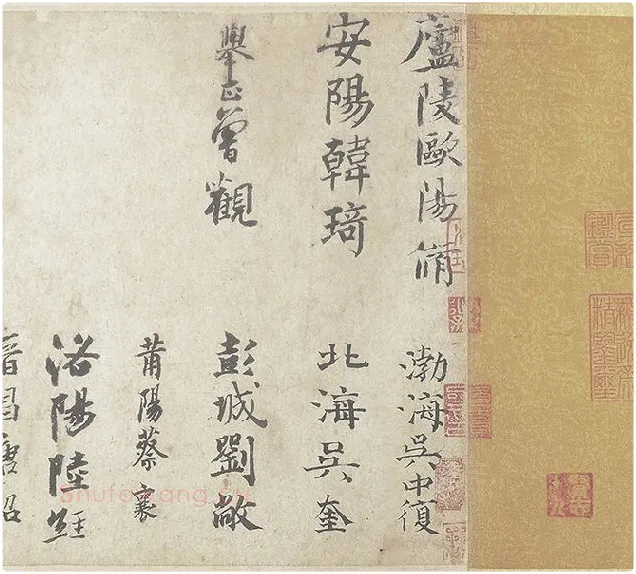 廬陵歐陽脩
渤海吳中復
安陽韓琦
北海吳奎
舉正曾觀
彭城劉敞
莆陽蔡襄
洛陽陸經
晉昌唐